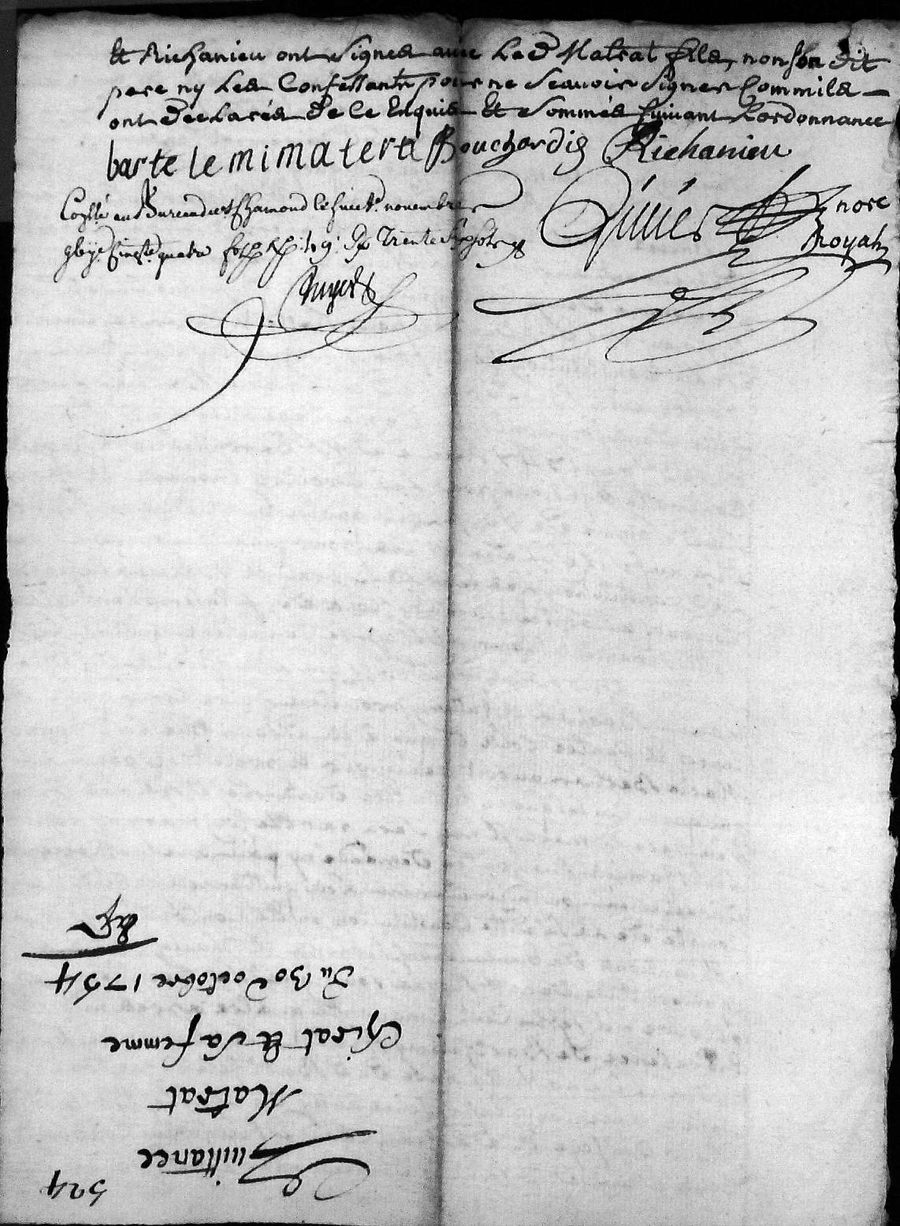 Et Richanieu ont signes avec Led Matrat fils, non son dit
pere ny Les Confessants pour ne scavoir signer Commils
ont declarés de ce Enquis Et sommés suivant Lordonnance
bartelemi matera Bouchardig Richanieu
Coñllé au Bureau de st Chamond le huict novembre
cinqte quatre trente
nore
Royal
524
Quittance
Matrat
Chirat Et sa femme
Du 30 octobre 1754